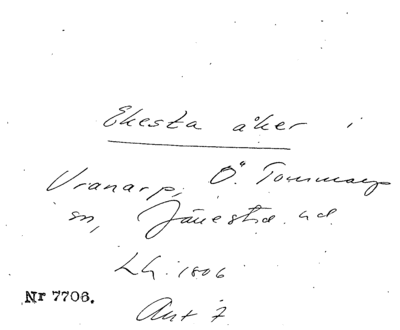 Ekesta åker i
Vranarp, Ö. Tommarp
sn, Järrestad hd
Lh. 1806
Nr 7706.
Akt 7